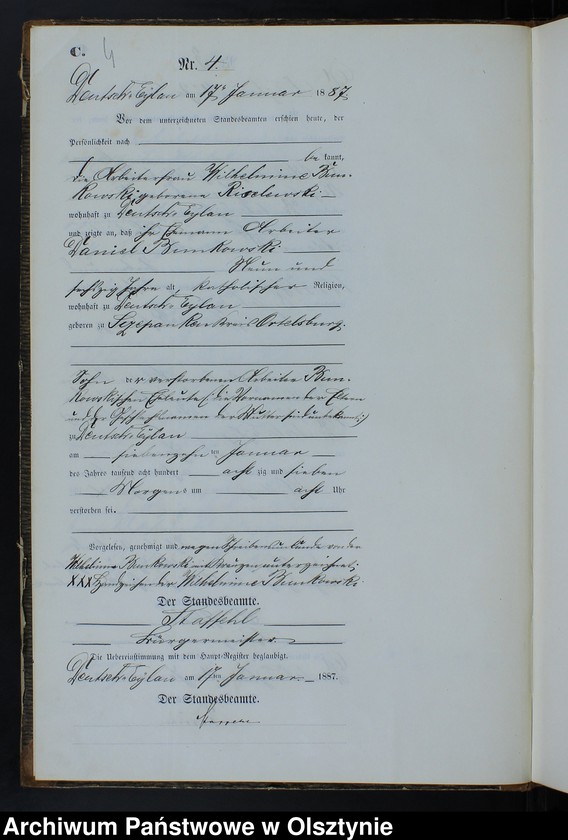 C. 4
Nr. 4.
Deutsch Eylau am 17 Januar 1887
Vor dem unterzeichneten Standesbeamten erschien heute, der
Persönlichkeit nach
be kannt,
die Arbeiterfrau Wilhelmine Bun-
kowski, geborene
wohnhaft zu Deutsch Eylau
und zeigte an, daß ihr Ehemann Arbeiter
Daniel Bunkowski
Neun und
sechszig Jahre alt, katholischer Religion,
wohnhaft zu Deutsch Eylau
geboren zu Sczepanken Kreis Ortelsburg.
Sohn der verstorbenen Arbeiter Bun-
kowskischen Eheleute (: die Vornamen der Eltern
und der Geburtsnamen der Mutter sind unbekannt :)
zu Deutsch Eylau
am siebenzehn ten Januar
des Jahres tausend acht hundert acht zig und sieben
Morgens um acht Uhr
verstorben sei.
Vorgelesen, genehmigt und wegen Schreibensunkunde von der
Wilhelmine Bunkowski mit Kreuzen unterzeichnet
XXX Handzeichen der Wilhelmine Bunkowski
Der Standesbeamte.
Staffehl
Bürgermeister
Die Uebereinstimmung mit dem Haupt-Register beglaubigt.
Deutsch Eylau am 17ten Januar 1887.
Der Standesbeamte.
Archiwum Państwowe w Olsztynie